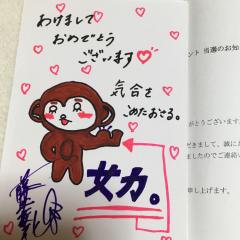 わけまして
おめでとう
ございます
気合を
こめたおさる。
女力。
ント 当選のお知
がとうございます。
だきまして、誠に
ましたのでご連絡い
申し上げます。